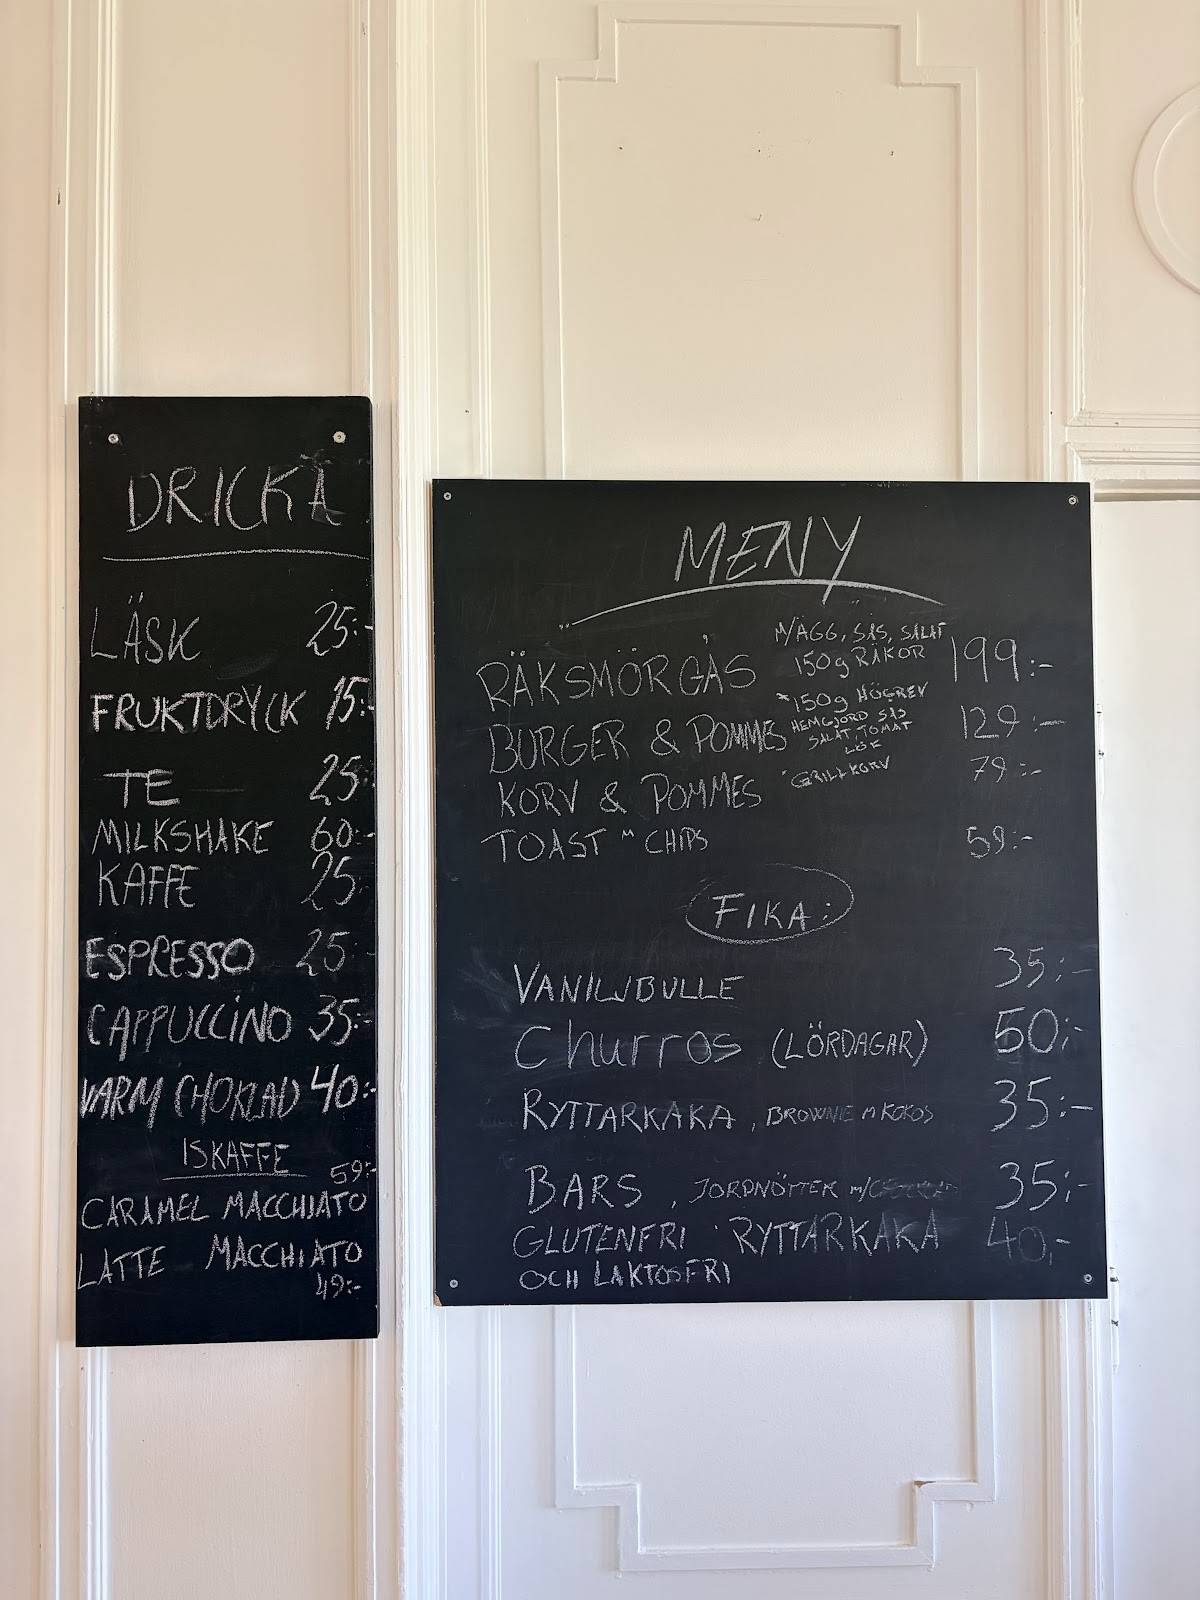 DRICKA
LÄSK 25:-
FRUKTDRYCK 15:-
TE 25:-
MILKSHAKE 60:-
KAFFE 25:-
ESPRESSO 25:-
CAPPUCCINO 35:-
VARM CHOKLAD 40:-
ISKAFFE
59:-
CARAMEL MACCHIATO
LATTE MACCHIATO
49:-
MENY
RÄKSMÖRGÅS M/ÄGG, SÅS, SALAT 199:-
150g RÄKOR
BURGER & POMMES *150g HÖGREV 129:-
HEMGJORD SÅS
SALAT, TOMAT
LÖK
KORV & POMMES GRILLKORV 79:-
TOAST M CHIPS 59:-
FIKA:
VANILJBULLE 35:-
Churros (LÖRDAGAR) 50:-
RYTTARKAKA, BROWNIE M KOKOS 35:-
BARS, JORDNÖTTER m/ 35:-
GLUTENFRI RYTTARKAKA 40,-
OCH LAKTOSFRI